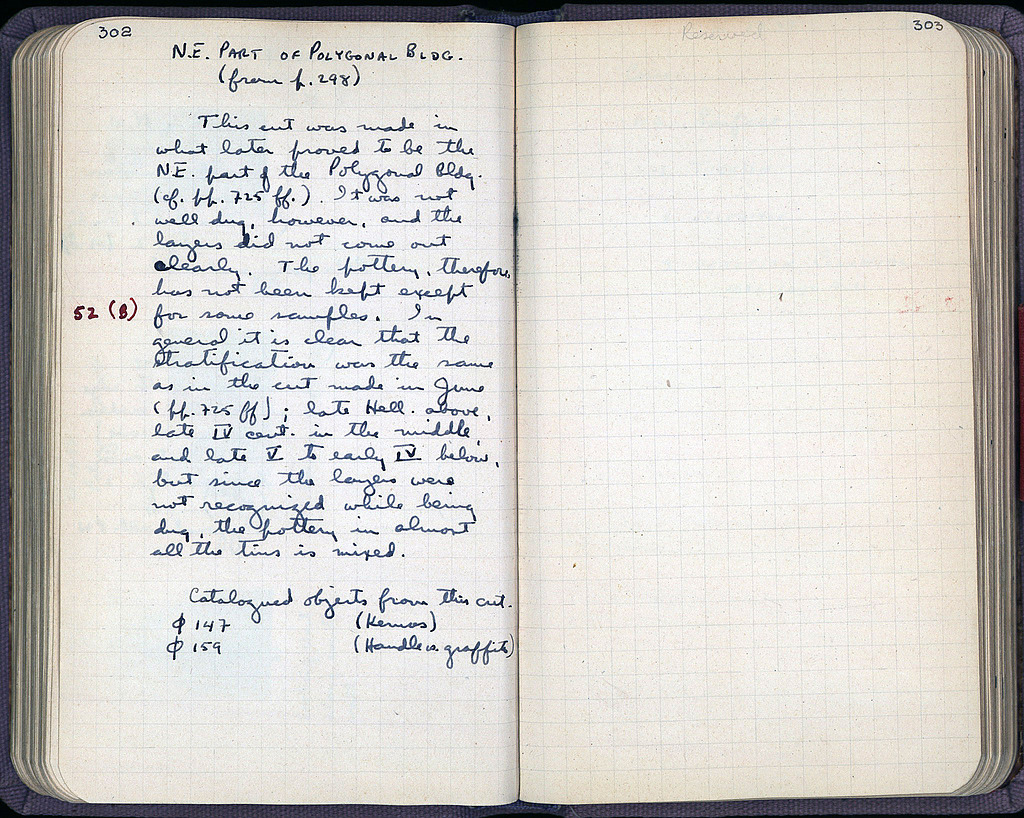 302
N.E. PART OF POLYGONAL BLDG.
(from p. 298)
This cut was made in
what later proved to be the
N.E. part of the Polygonal Bldg.
(cf. pp. 725 ff.). It was not
well dug, however, and the
layers did not come out
clearly. The pottery, therefore,
has not been kept except
52 (B) for some samples. In
general it is clear that the
stratification was the same
as in the cut made in June
(pp. 725 ff); late Hell. above,
late IV cent. in the middle,
and late V to early IV below,
but since the layers were
not recognized while being
dug, the pottery in almost
all the tins is mixed.
Catalogued objects from this cut.
ϕ 147 (Kernos)
ϕ 159 (Handle w. graffito)
303
Reserved